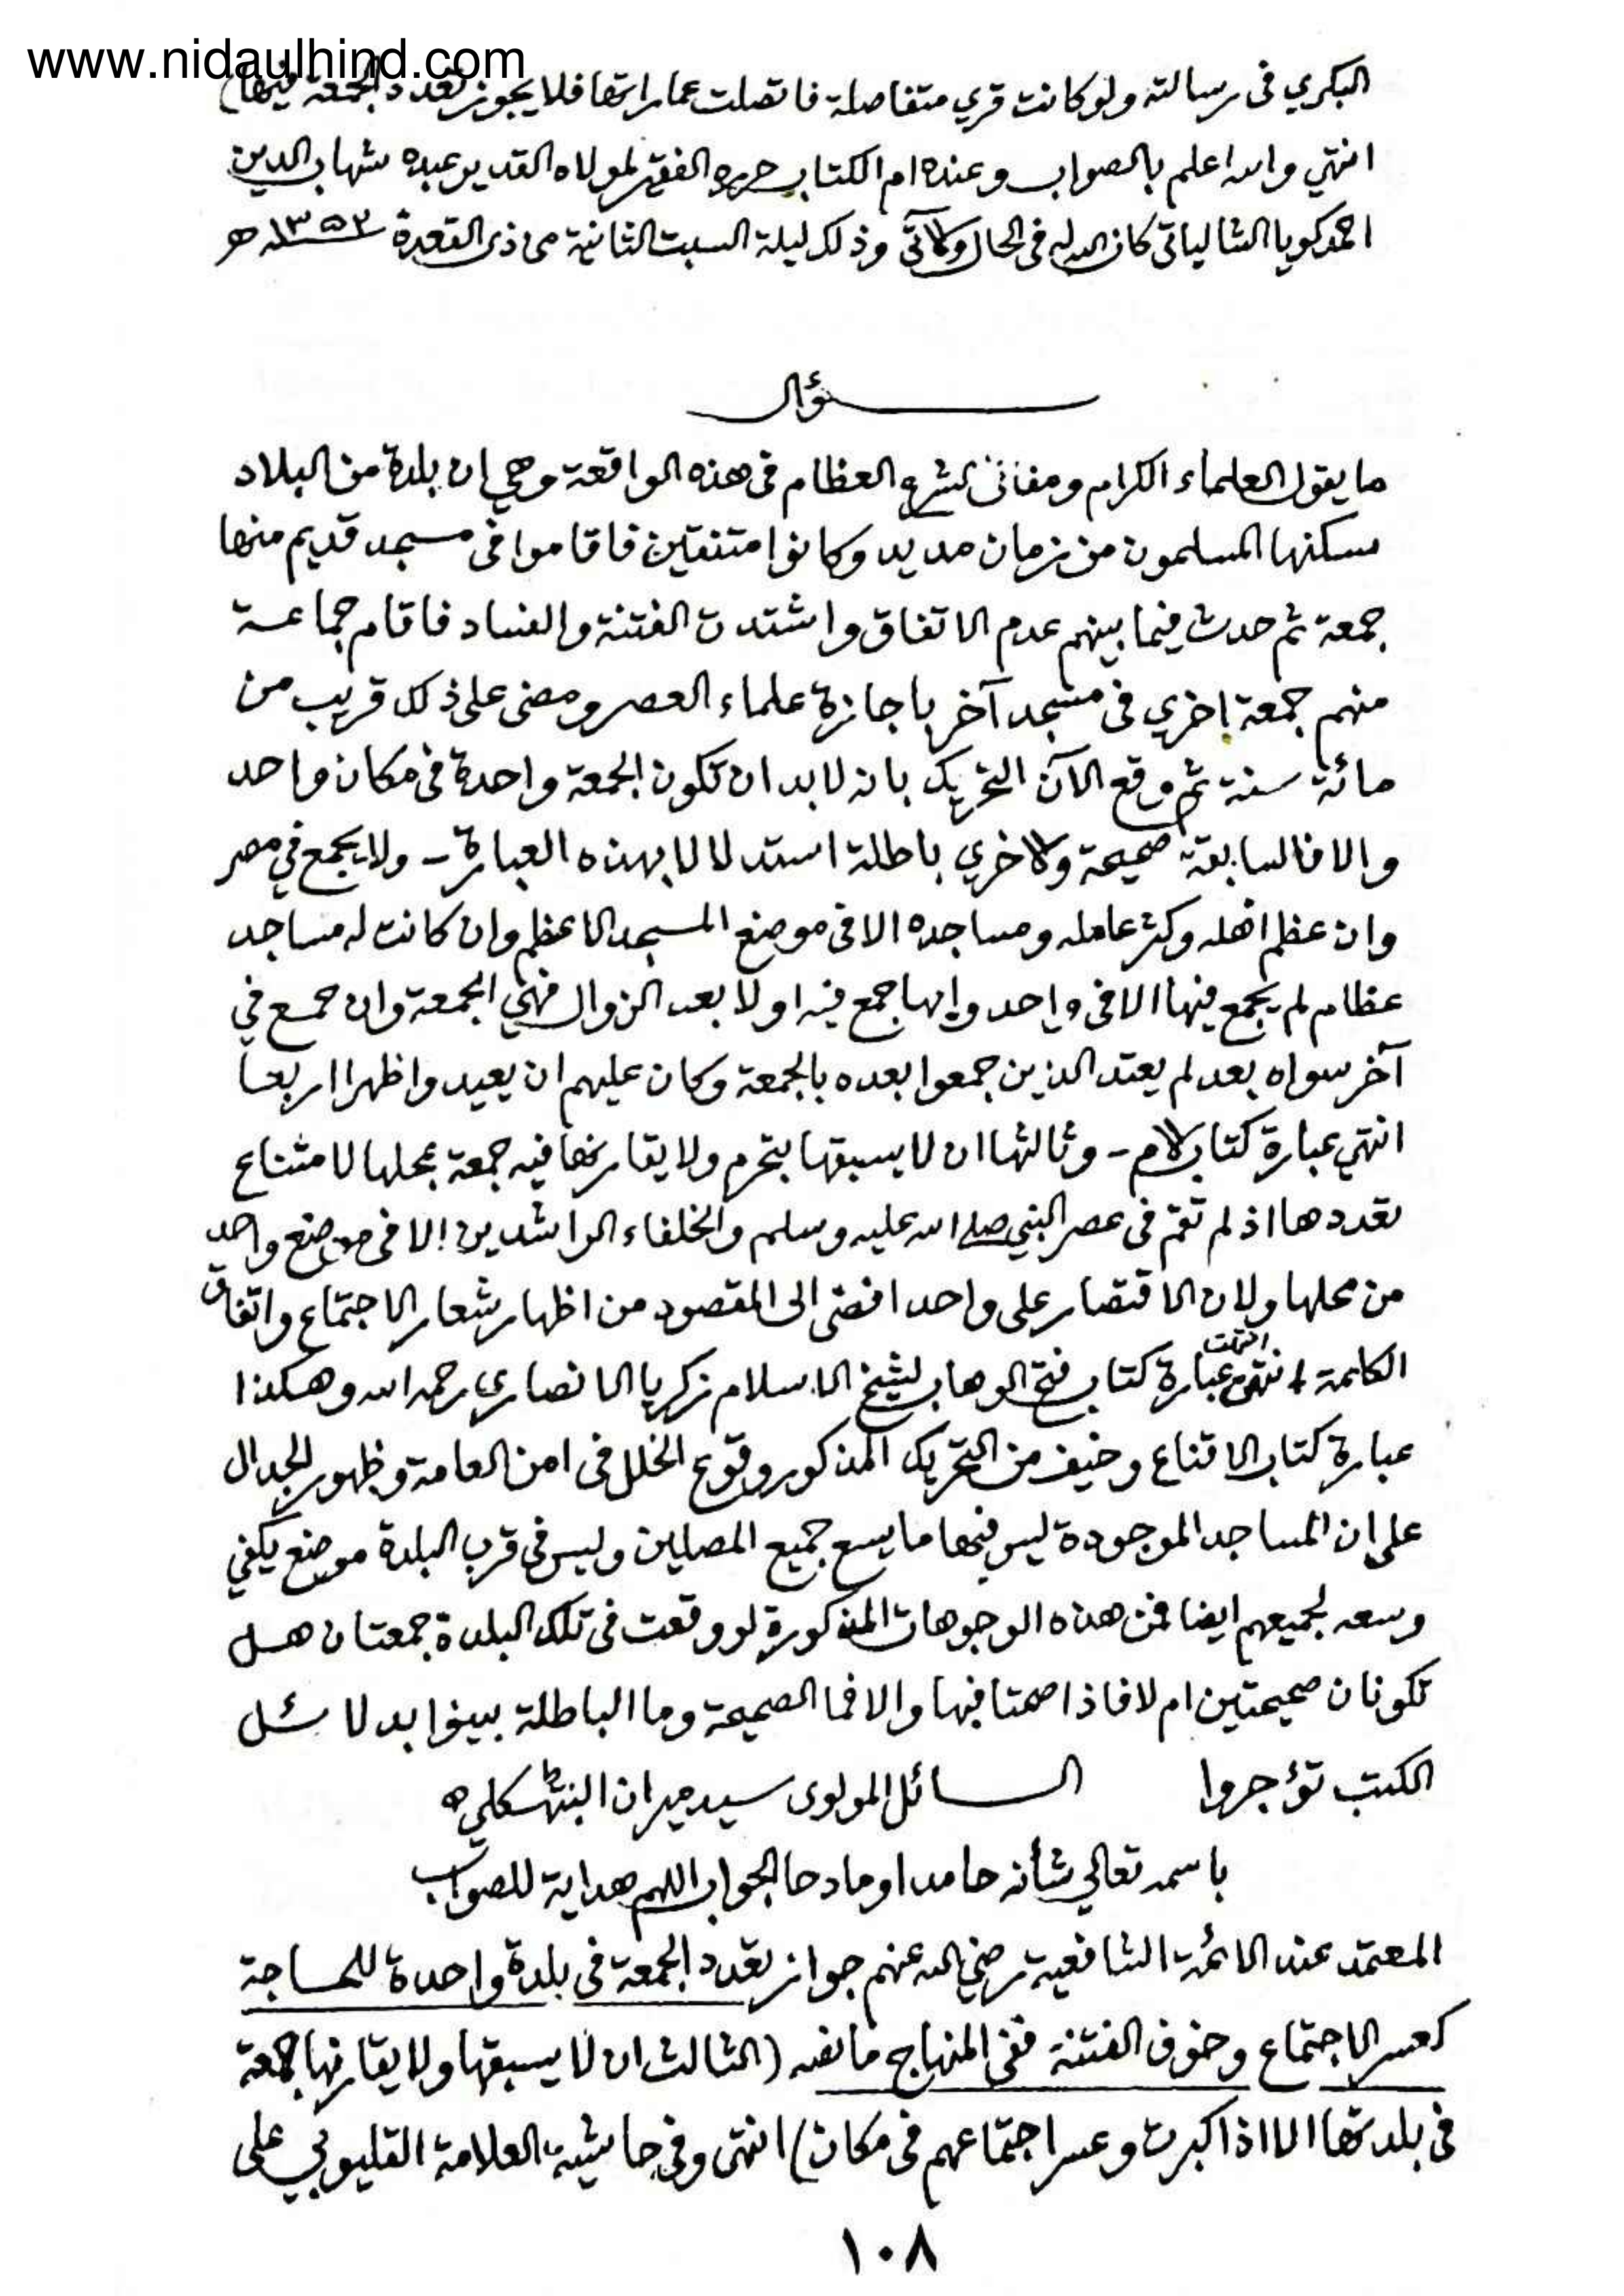 www.nidaulhind.com
البكري فى رسالته ولو كانت قري متفاصلة فاتصلت عماراتها فلا يجوز تعدد الجمعة فيها
انتهي والله اعلم بالصواب وعنده ام الكتاب حرره الفقير لمولاه القدير عبده شهاب الدين
احمد كويا الشالياتى كان الله له فى الحال والآتى وذلك ليلة السبت الثانية من ذى القعدة ١٣٥٣ ه
سؤال
ما يقول العلماء الكرام ومفاتى الشرع العظام فى هذه الواقعة وهي ان بلدة من البلاد
سكنها المسلمون من زمان مديد وكانوا متفقين فاقاموا فى مسجد قديم منها
جمعة ثم حدث فيما بينهم عدم الاتفاق واشتدت الفتنة والفساد فاقام جماعة
منهم جمعة اخري فى مسجد آخر باجازة علماء العصر ومضى على ذلك قريب من
مائة سنة ثم وقع الآن التحريك بانه لابد ان تكون الجمعة واحدة فى مكان واحد
والا فالسابقة صحيحة والاخري باطلة استدلالا بهذه العبارة - ولا يجمع في مصر
وان عظم اهله وكثر عامله ومساجده الا فى موضع المسجد الاعظم وان كانت له مساجد
عظام لم يجمع فيها الا فى واحد وايها جمع فيه اولا بعد الزوال فهي الجمعة وان جمع في
آخر سواه بعد لم يعتد الذين جمعوا بعده بالجمعة وكان عليهم ان يعيدوا ظهرا اربعا
انتهي عبارة كتاب الام - وثالثها ان لا يسبقها بتحرم ولا يقارنها فيه جمعة بمحلها لامتناع
تعددها اذ لم تقم فى عصر النبي صلى الله عليه وسلم والخلفاء الراشدين الا فى موضع واحد
من محلها ولان الاقتصار على واحد افضى الى المقصود من اظهار شعار الاجتماع واتفاق
الكلمة انتهت عبارة كتاب فتح الوهاب لشيخ الاسلام زكريا الانصاري رحمه الله وهكذا
عبارة كتاب الاقناع وخيف من التحريك المذكور وقوع الخلل فى امن العامة وظهور الجدال
على ان المساجد الموجودة ليس فيها ما يسع جميع المصلين وليس فى قرب البلدة موضع يكفي
وسعه لجميعهم ايضا فمن هذه الوجوهات المذكورة لو وقعت فى تلك البلدة جمعتان هل
تكونان صحيحتين ام لا فاذا صحتا فبها والا فما الصحيحة وما الباطلة بينوا بدلائل
الكتب تؤجروا السائل المولوى سيد ميران
باسمه تعالي شأنه حامدا ومادحا الجواب اللهم هداية للصواب
المعتمد عند الائمة الشافعية رضي الله عنهم جواز تعدد الجمعة فى بلدة واحدة للحاجة
كعسر الاجتماع وخوف الفتنة ففى المنهاج ما نصه (الثالث ان لا يسبقها ولا يقارنها جمعة
فى بلدتها الا اذا كبرت وعسر اجتماعهم فى مكان) انتهى وفي حاشية العلامة القليوبي على
١٠٨